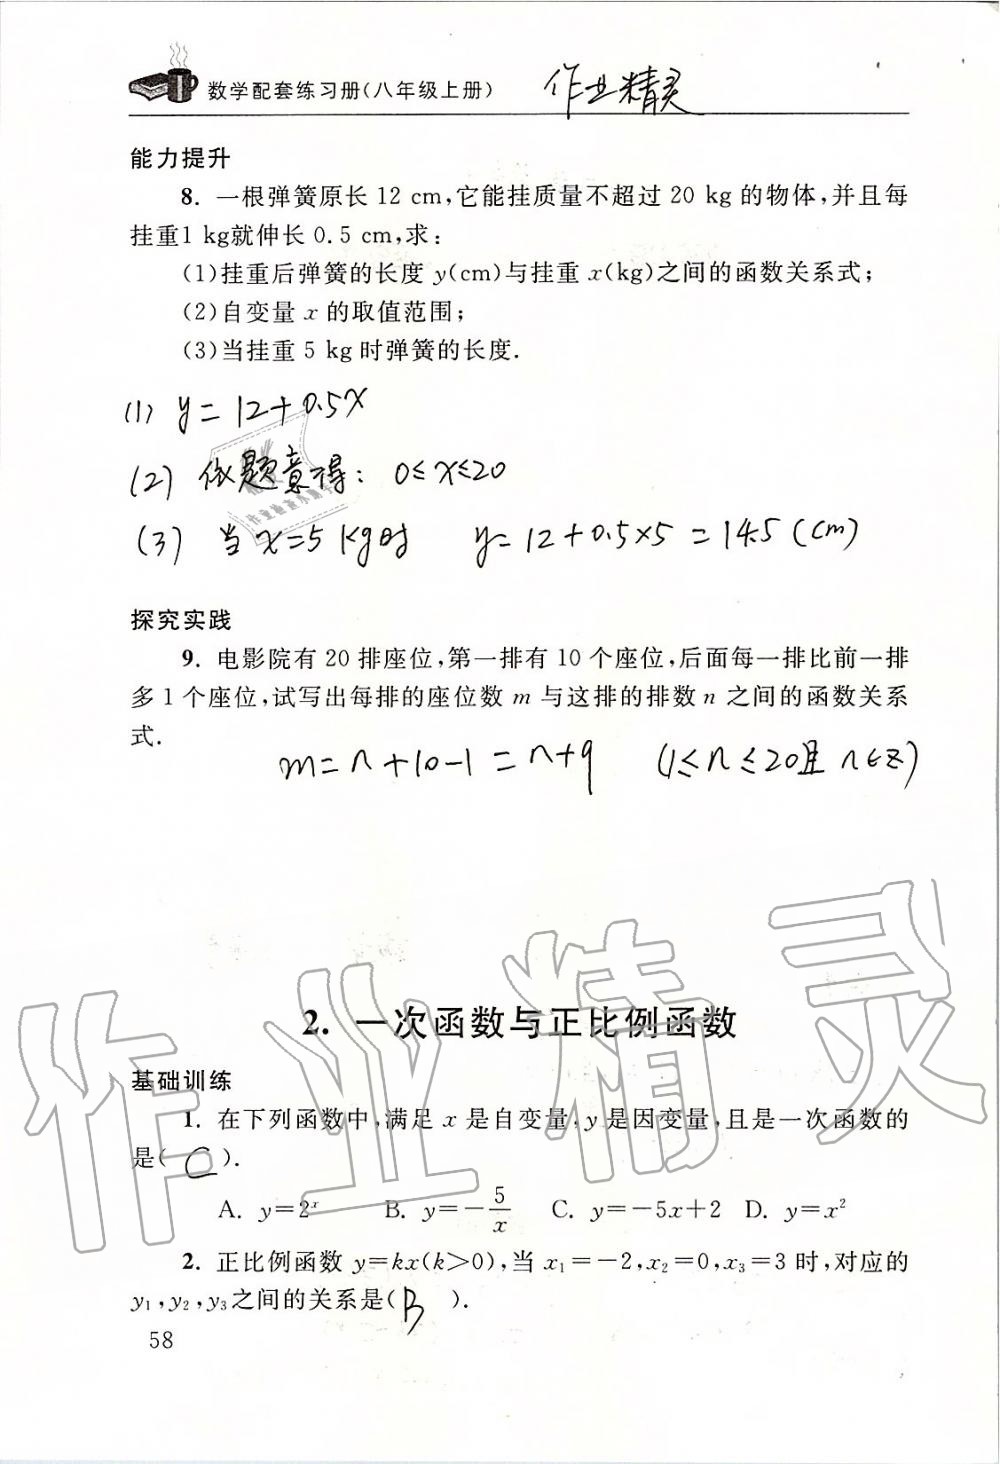 数学配套练习册(八年级上册) 作业精灵
能力提升
8. 一根弹簧原长 12 cm,它能挂质量不超过 20 kg 的物体,并且每
挂重1 kg就伸长 0.5 cm,求:
(1)挂重后弹簧的长度 y(cm)与挂重 x(kg)之间的函数关系式;
(2)自变量 x 的取值范围;
(3)当挂重 5 kg 时弹簧的长度.
(1) y=12+0.5x
(2) 依题意得: 0≤x≤20
(3) 当x=5kg时 y=12+0.5×5=14.5(cm)
探究实践
9. 电影院有 20 排座位,第一排有 10 个座位,后面每一排比前一排
多 1 个座位,试写出每排的座位数 m 与这排的排数 n 之间的函数关系
式.
m=n+10-1=n+9 (1≤n≤20且 n∈z)
作业精灵
2. 一次函数与正比例函数
基础训练
1. 在下列函数中,满足 x 是自变量,y 是因变量,且是一次函数的
是( C ).
A. y=2ˣ B. y=-5/x C. y=-5x+2 D. y=x²
2. 正比例函数 y=kx(k>0),当 x₁=-2,x₂=0,x₃=3 时,对应的
y₁,y₂,y₃之间的关系是( B ).
58